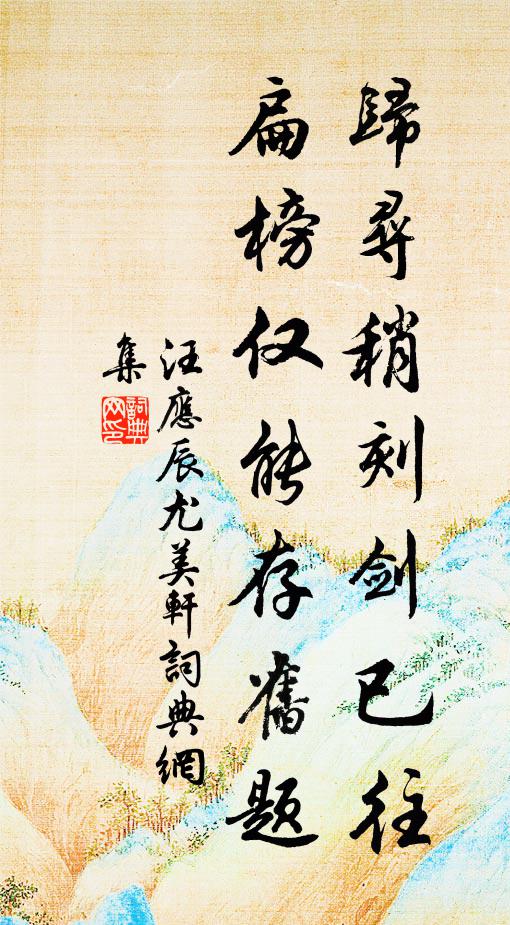 歸尋稍刻劍已往
扁榜仅能存舊题
汪應辰尤美軒詞典網
集
詞典網印